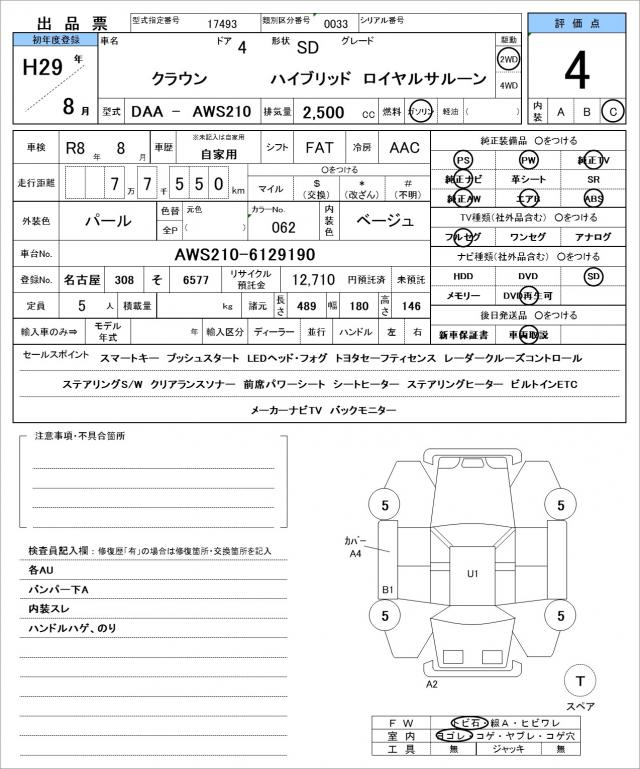 出品票 型式指定番号 17493 類別区分番号 0033 シリアル番号
評価点
初年度登録 車名 ドア 4 形状 SD グレード 駆動
H29 年
8 月
クラウン ハイブリッド ロイヤルサルーン
2WD
4WD
4
型式 DAA － AWS210 排気量 2,500 cc 燃料 ガソリン 軽油 ( )
内装 A B C
車検 R8 年 8 月 車歴 ※未記入は自家用 自家用 シフト FAT 冷房 AAC
走行距離 7 万 7 千 5 5 0 km
〇をつける
マイル $ (交換) * (改ざん) # (不明)
外装色 パール 色替 元色 全P ( ) カラーNo. 062 内装色 ベージュ
車台No. AWS210-6129190
登録No. 名古屋 308 そ 6577 リサイクル預託金 12,710 円預託済 未預託
定員 5 人 積載量 kg 諸元 長さ 489 幅 180 高さ 146
輸入車のみ⇒ モデル年式 年 輸入区分 ディーラー 並行 ハンドル 左 右
純正装備品 〇をつける
PS PW 純正TV
純正ナビ 革シート SR
純正AW エアB ABS
TV種類(社外品含む) 〇をつける
フルセグ ワンセグ アナログ
ナビ種類(社外品含む) 〇をつける
HDD DVD SD
メモリー DVD再生可
後日発送品 〇をつける
新車保証書 車両取説
セールスポイント スマートキー プッシュスタート LEDヘッド・フォグ トヨタセーフティセンス レーダークルーズコントロール
ステアリングS/W クリアランスソナー 前席パワーシート シートヒーター ステアリングヒーター ビルトインETC
メーカーナビTV バックモニター
注意事項・不具合箇所
検査員記入欄：修復歴「有」の場合は修復箇所・交換箇所を記入
各AU
バンパー下A
内装スレ
ハンドルハゲ、のり
5 5
カバー
A4
U1
B1
5 5
A2
T
スペア
ＦＷ トビ石・線Ａ・ヒビワレ
室内 ヨゴレ・コゲ・ヤブレ・コゲ穴
工具 無 ジャッキ 無